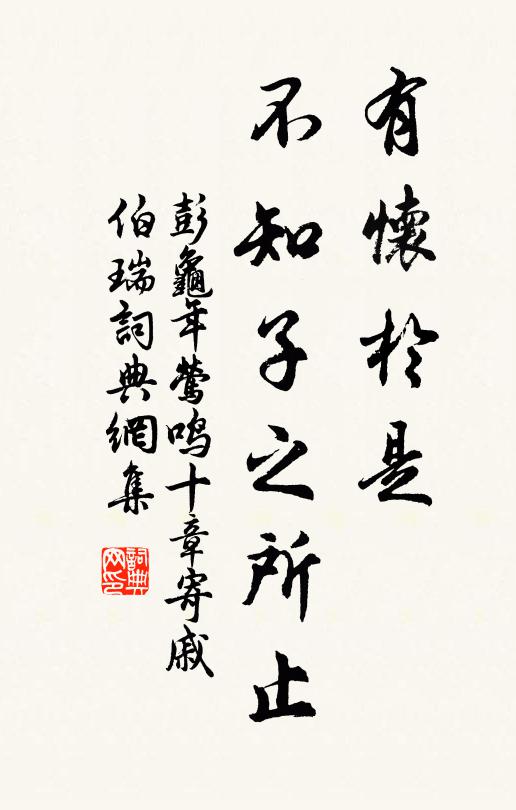 有懷於是
不知子之所止
彭龜年鶯鳴十章寄戚
伯瑞詞典網集
詞典
网印